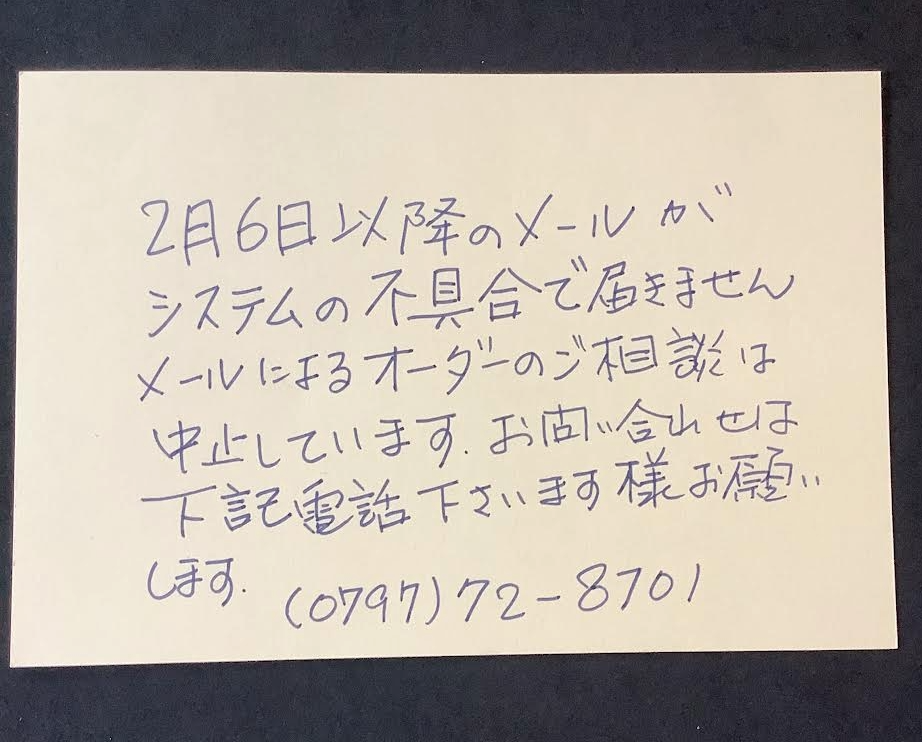 2月6日以降のメールが
システムの不具合で届きません
メールによるオーダーのご相談は
中止しています.お問い合わせは
下記電話下さいます様お願い
します.
(0797)72-8701